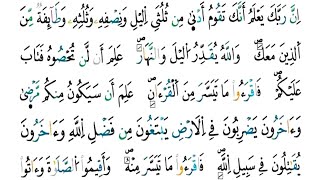 إِنَّ رَبَّكَ يَعْلَمُ أَنَّكَ تَقُومُ أَدْنَىٰ مِن ثُلُثَيِ اِ۬ليْلِ وَنِصْفِهِۦ وَثُلُثِهِۦ وَطَآئِفَةٞ مِّنَ
اَ۬لذِينَ مَعَكَۖ وَاللَّهُ يُقَدِّرُ اُ۬ليْلَ وَالنَّهَارَۖ عَلِمَ أَن لَّن تُحْصُوهُ فَتَابَ
عَلَيْكُمْۖ فَاقْرَءُواْ مَا تَيَسَّرَ مِنَ اَ۬لْقُرْءَانِۖ عَلِمَ أَن سَيَكُونُ مِنكُم مَّرْضَىٰ
وَءَاخَرُونَ يَضْرِبُونَ فِي اِ۬لَارْضِ يَبْتَغُونَ مِن فَضْلِ اِ۬للَّهِ وَءَاخَرُونَ
يُقَٰتِلُونَ فِي سَبِيلِ اِ۬للَّهِۖ فَاقْرَءُواْ مَا تَيَسَّرَ مِنْهُۖ وَأَقِيمُواْ اُ۬لصَّلَوٰةَ وَءَاتُواْ